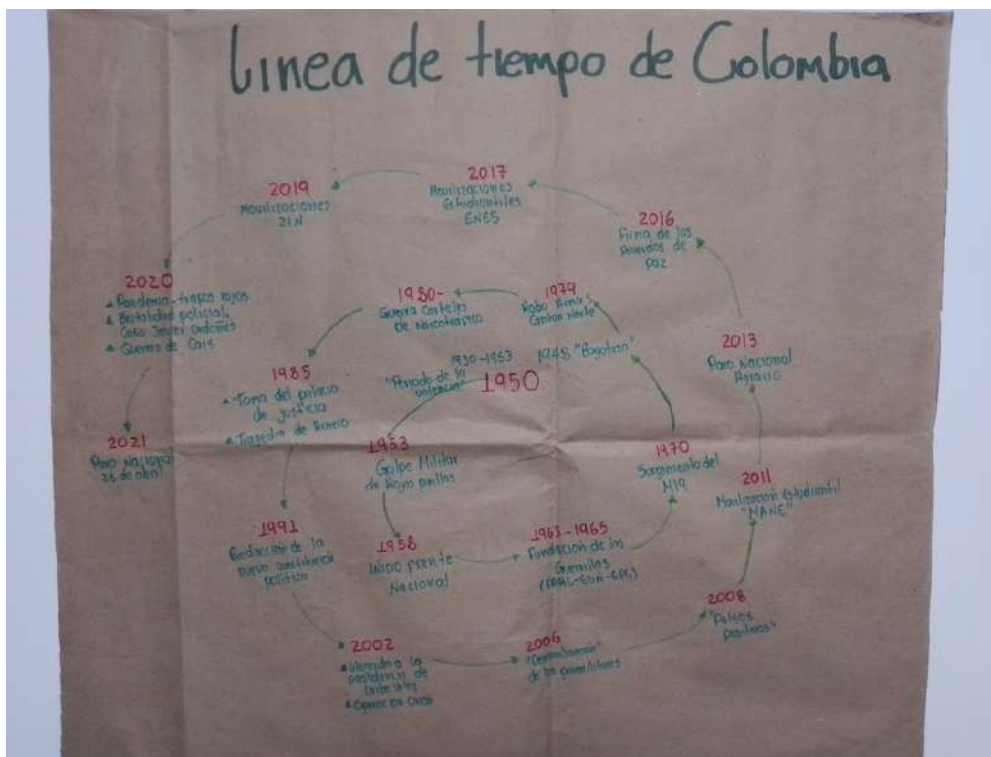 Linea de tiempo de Colombia
1948 "Bogotazo"
1930-1953
"Periodo de la
violencia"
1950
1953
Golpe Militar
de Rojas pinillas
1958
Inicio Frente
Nacional
1963-1965
Fundación de las
Guerrillas
1970
Surgimiento del
M19
1979
Robo Armas
Canton Norte
1980-
Guerra Carteles
de Narcotrafico
1985
Toma del palacio
de justicia
Tragedia de Armero
1991
Redacción de la
nueva constitución
política
2002
presidencia de
Uribe Velez
Operacion Orión
2006
de los paramilitares
2008
"Falsos
positivos"
2011
Movilización Estudiantil
"MANE"
2013
Paro Nacional
Agrario
2016
Firma de los
Acuerdos de
paz
2017
Movilizaciones
Estudiantiles
ENEES
2019
Movilizaciones
21N
2020
Pandemia-trapos rojos
Brutalidad policial
Caso Javier Ordoñes
Quemas de Cais
2021
Paro Nacional
28 de abril